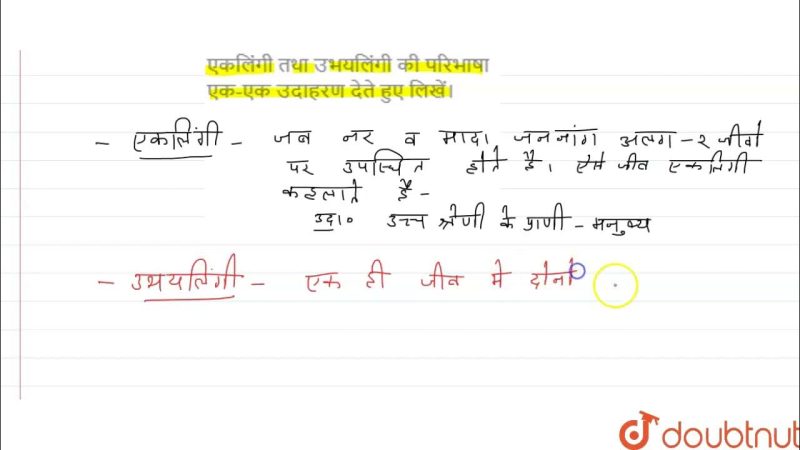 एकलिंगी तथा उभयलिंगी की परिभाषा
एक-एक उदाहरण देते हुए लिखें।
- एकलिंगी - जब नर व मादा जननांग अलग-२ जीवो
पर उपस्थित होते है। ऐसे जीव एकलिंगी
कहलाते है -
उदा० उच्च श्रेणी के प्राणी - मनुष्य
- उभयलिंगी - एक ही जीव मे दोनो
doubtnut